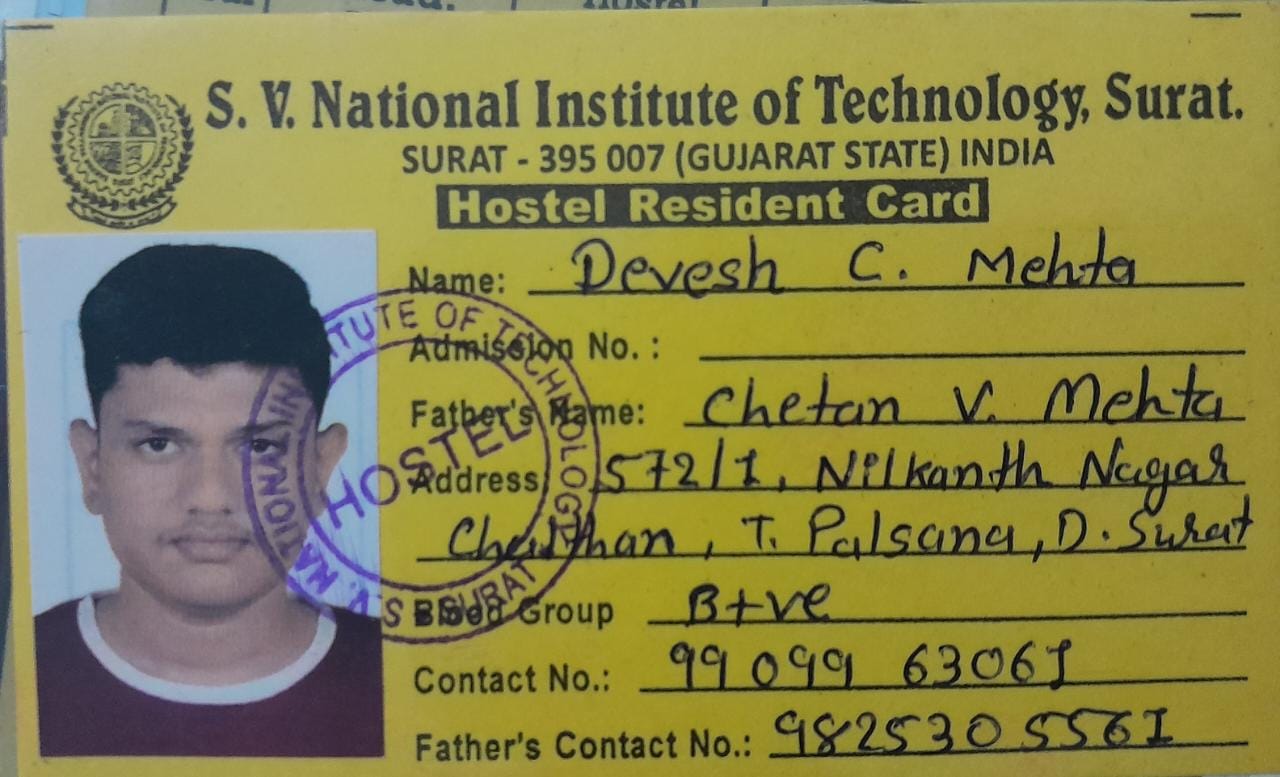 S. V. National Institute of Technology, Surat.
SURAT - 395 007 (GUJARAT STATE) INDIA
Hostel Resident Card
Name: Devesh C. Mehta
Admission No. :
Father's Name: Chetan V. Mehta
Address 572/1, Nilkanth Nagar
Chalthan, T. Palsana, D. Surat
Blood Group B+ve
Contact No.: 99099 63061
Father's Contact No.: 98253 05561
S. V. NATIONAL INSTITUTE OF TECHNOLOGY
SURAT
HOSTEL